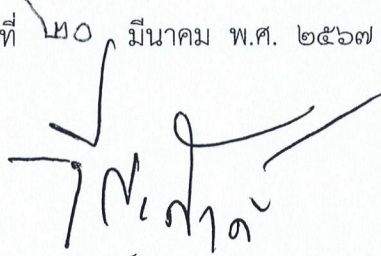 ที่ ๒๐ มีนาคม พ.ศ. ๒๕๖๗